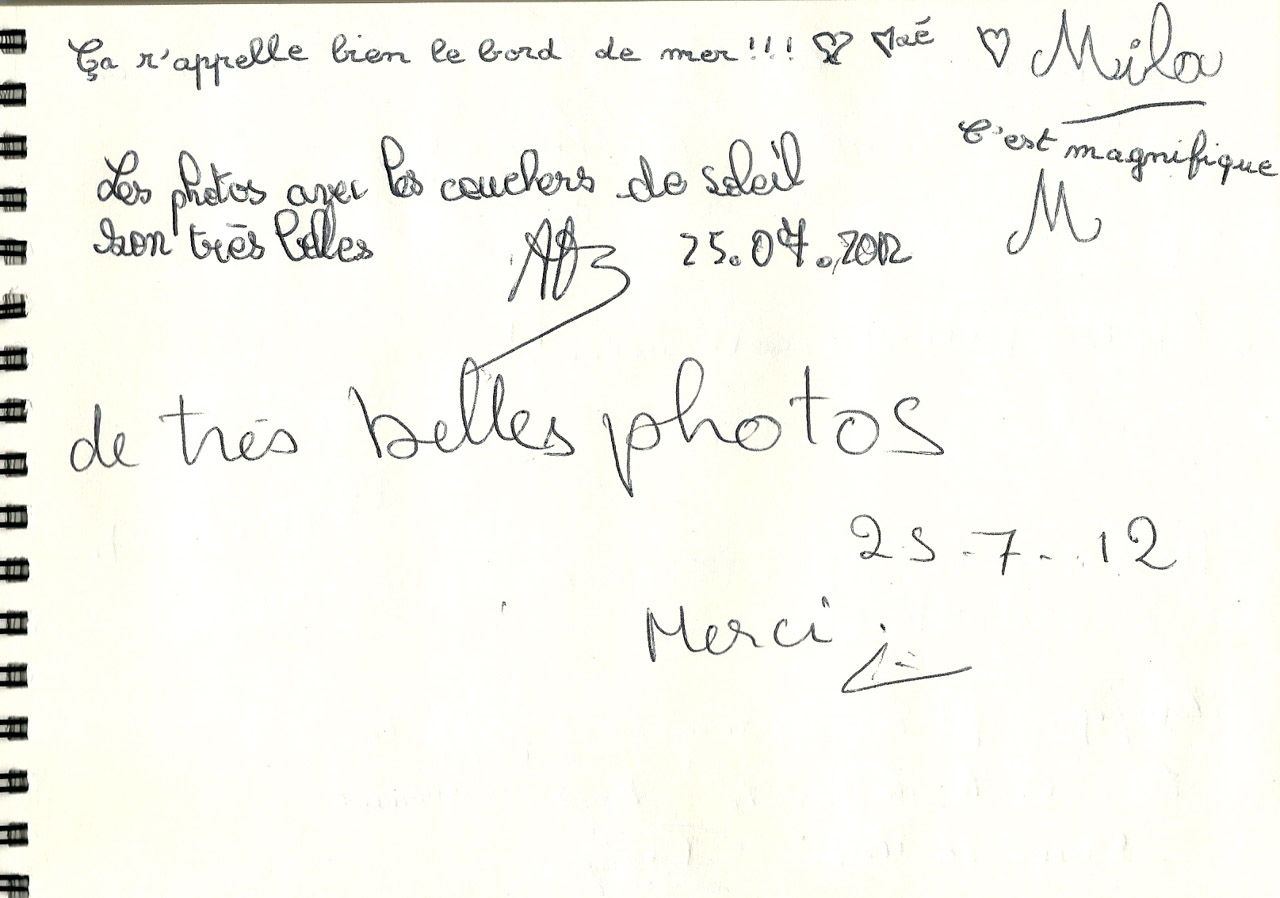 Ça r'appelle bien le bord de mer!!! ♡ Maé
♡ Mila
C'est magnifique
M
Les photos avec les couchers de soleil
son très belles 25.07.2012
de très belles photos
25-7-12
Merci